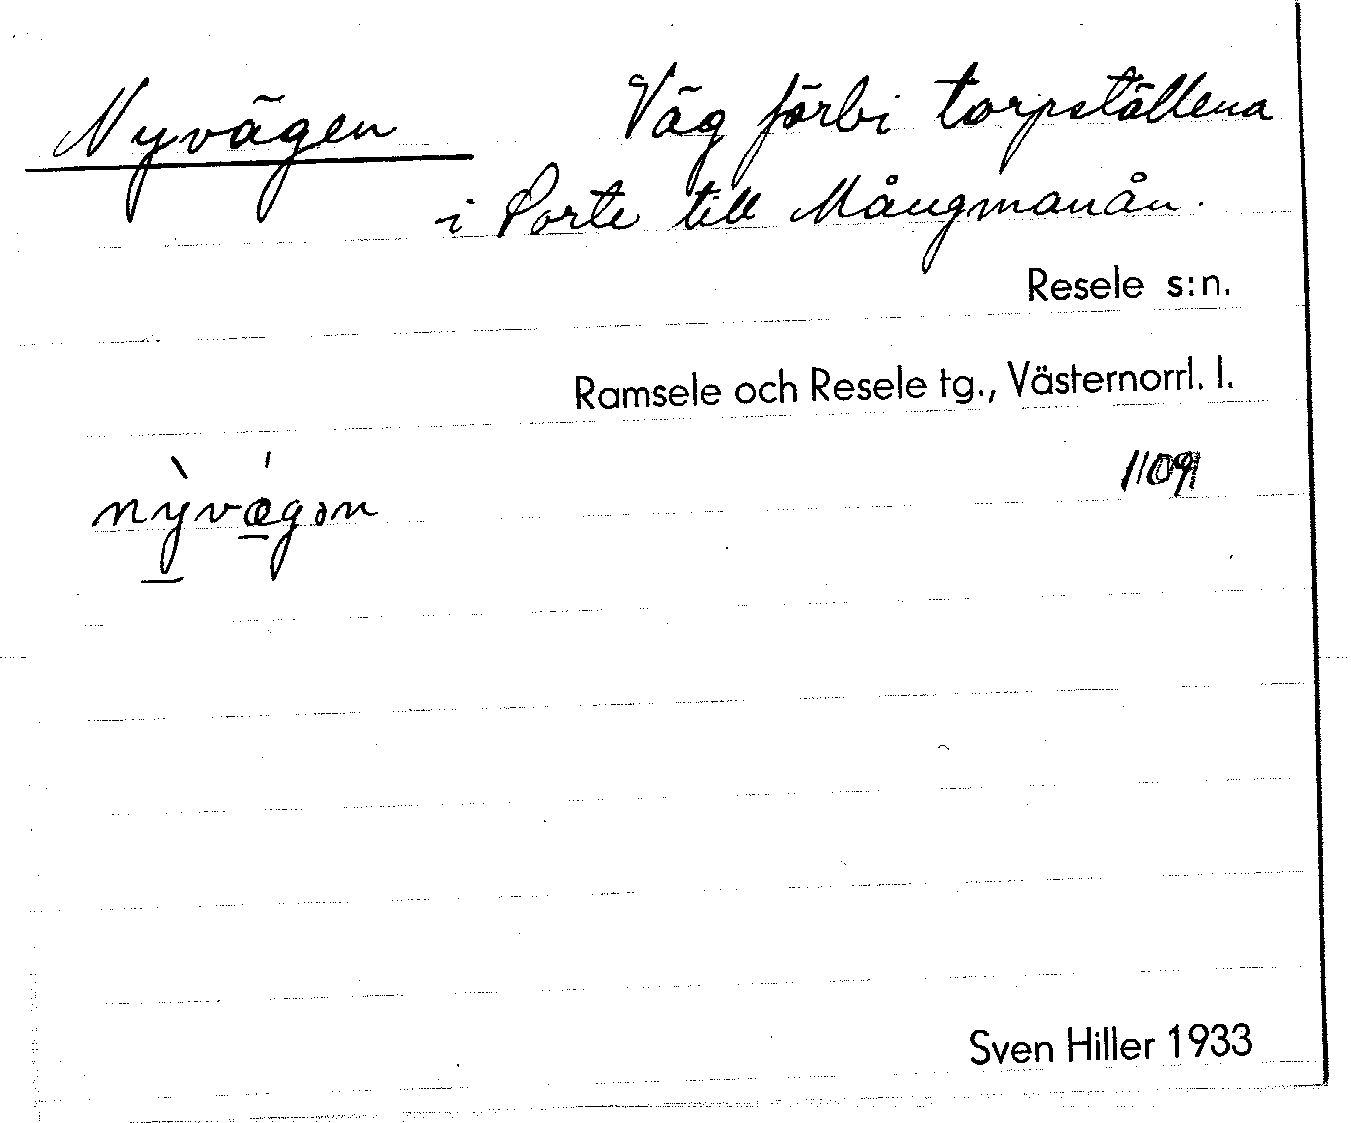 Nyvägen Väg förbi torpställena
i Porte till Mångmanån.
Resele s:n.
Ramsele och Resele tg., Västernorrl. l.
1109
nỳvǽgən
Sven Hiller 1933